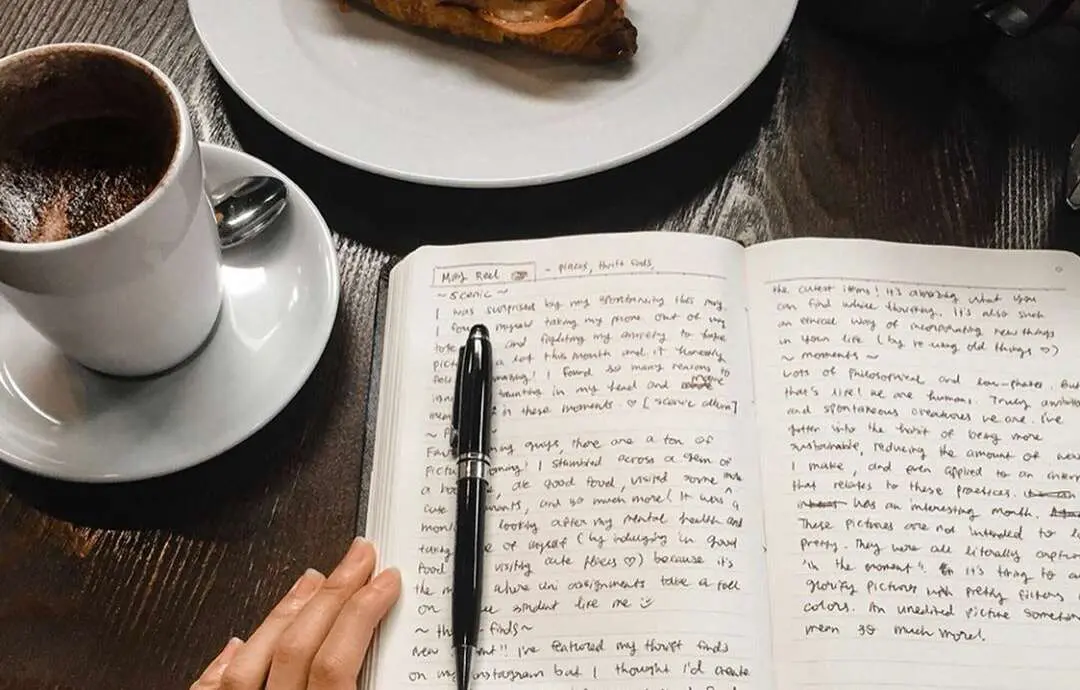 May Reel - places, thrift finds,
~ scenic ~
I was surprised by my spontaneity this may.
I myself taking my phone out of my
tote and fighting my anxiety to take
a lot this month and it honestly
amazing! I found so many reasons to
in my head and more
in these moments. ♡ [scenic album]
~
guys, there are a ton of
coming! I stumbled across a gem of
a , ate good food, visited some
cute , and so much more! It was a
looking after my mental health and
of myself (by indulging in good
food visiting cute places ♡) because it's
the where uni assignments take a toll
on student like me
~ finds ~
new !! I've featured my thrift finds
on my instagram but I thought I'd create
the cutest items! It's amazing what you
can find while thrifting. It's also such
an ethical way of incorporating new things
in your life (by re-using old things ♡)
~ moments ~
Lots of philosophical and
that's life! We are humans. Truly
and spontaneous creatures we are. I've
gotten into the habit of being more
sustainable, reducing the amount of
I make, and even applied to an
that relates to these practices.
was an interesting month.
These pictures are not intended to
pretty. They were all literally
"in the moment". It's tiring to
glorify pictures with pretty filters
colors. An unedited picture
mean so much more!.